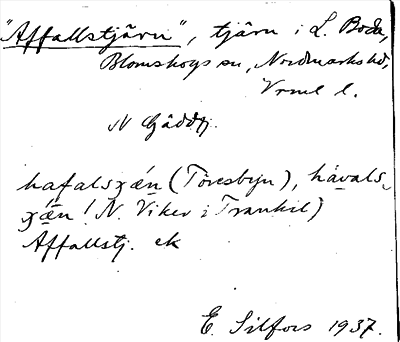 "Affallstjärn", tjärn i L. Boda,
Blomskogs sn, Nordmarks hd,
Vrml l.
N Gäddtj.
hafalsɣä́n (Töresbyn), hávals-
ɣä́n! N. Viker i Trankil)
Affallstj. ek
E. Silfors 1937.